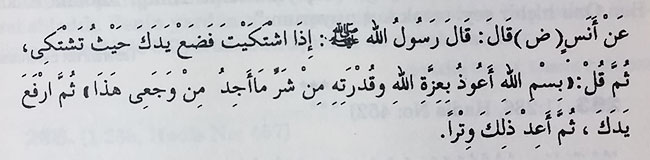 عَنْ أَنَسٍ( ض )قَالَ: قَالَ رَسُولُ الله ﷺ: إِذَا اشْتَكَيْتَ فَضَعْ يَدَكَ حَيْثُ تَشْتَكِى،
ثُمَّ قُلْ:«بِسْمِ الله أَعُوذُ بِعِزَّةِ اللهِ وَقُدْرَتِهِ مِنْ شَرِّ مَاأَجِدُ مِنْ وَجَعِى هَذَا» ثُمَّ ارْفَعَ
يَدَكَ ، ثُمَّ أَعِدْ ذَلِكَ وِتْراً.